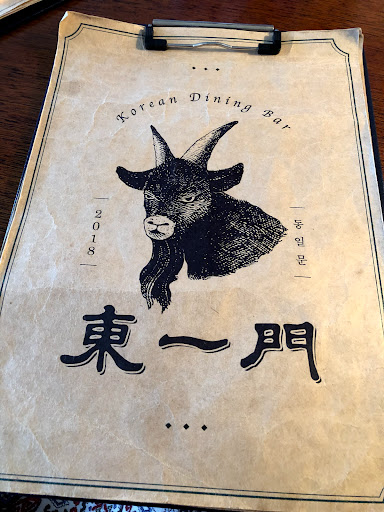 Korean Dining Bar
2018
동일문
東一門